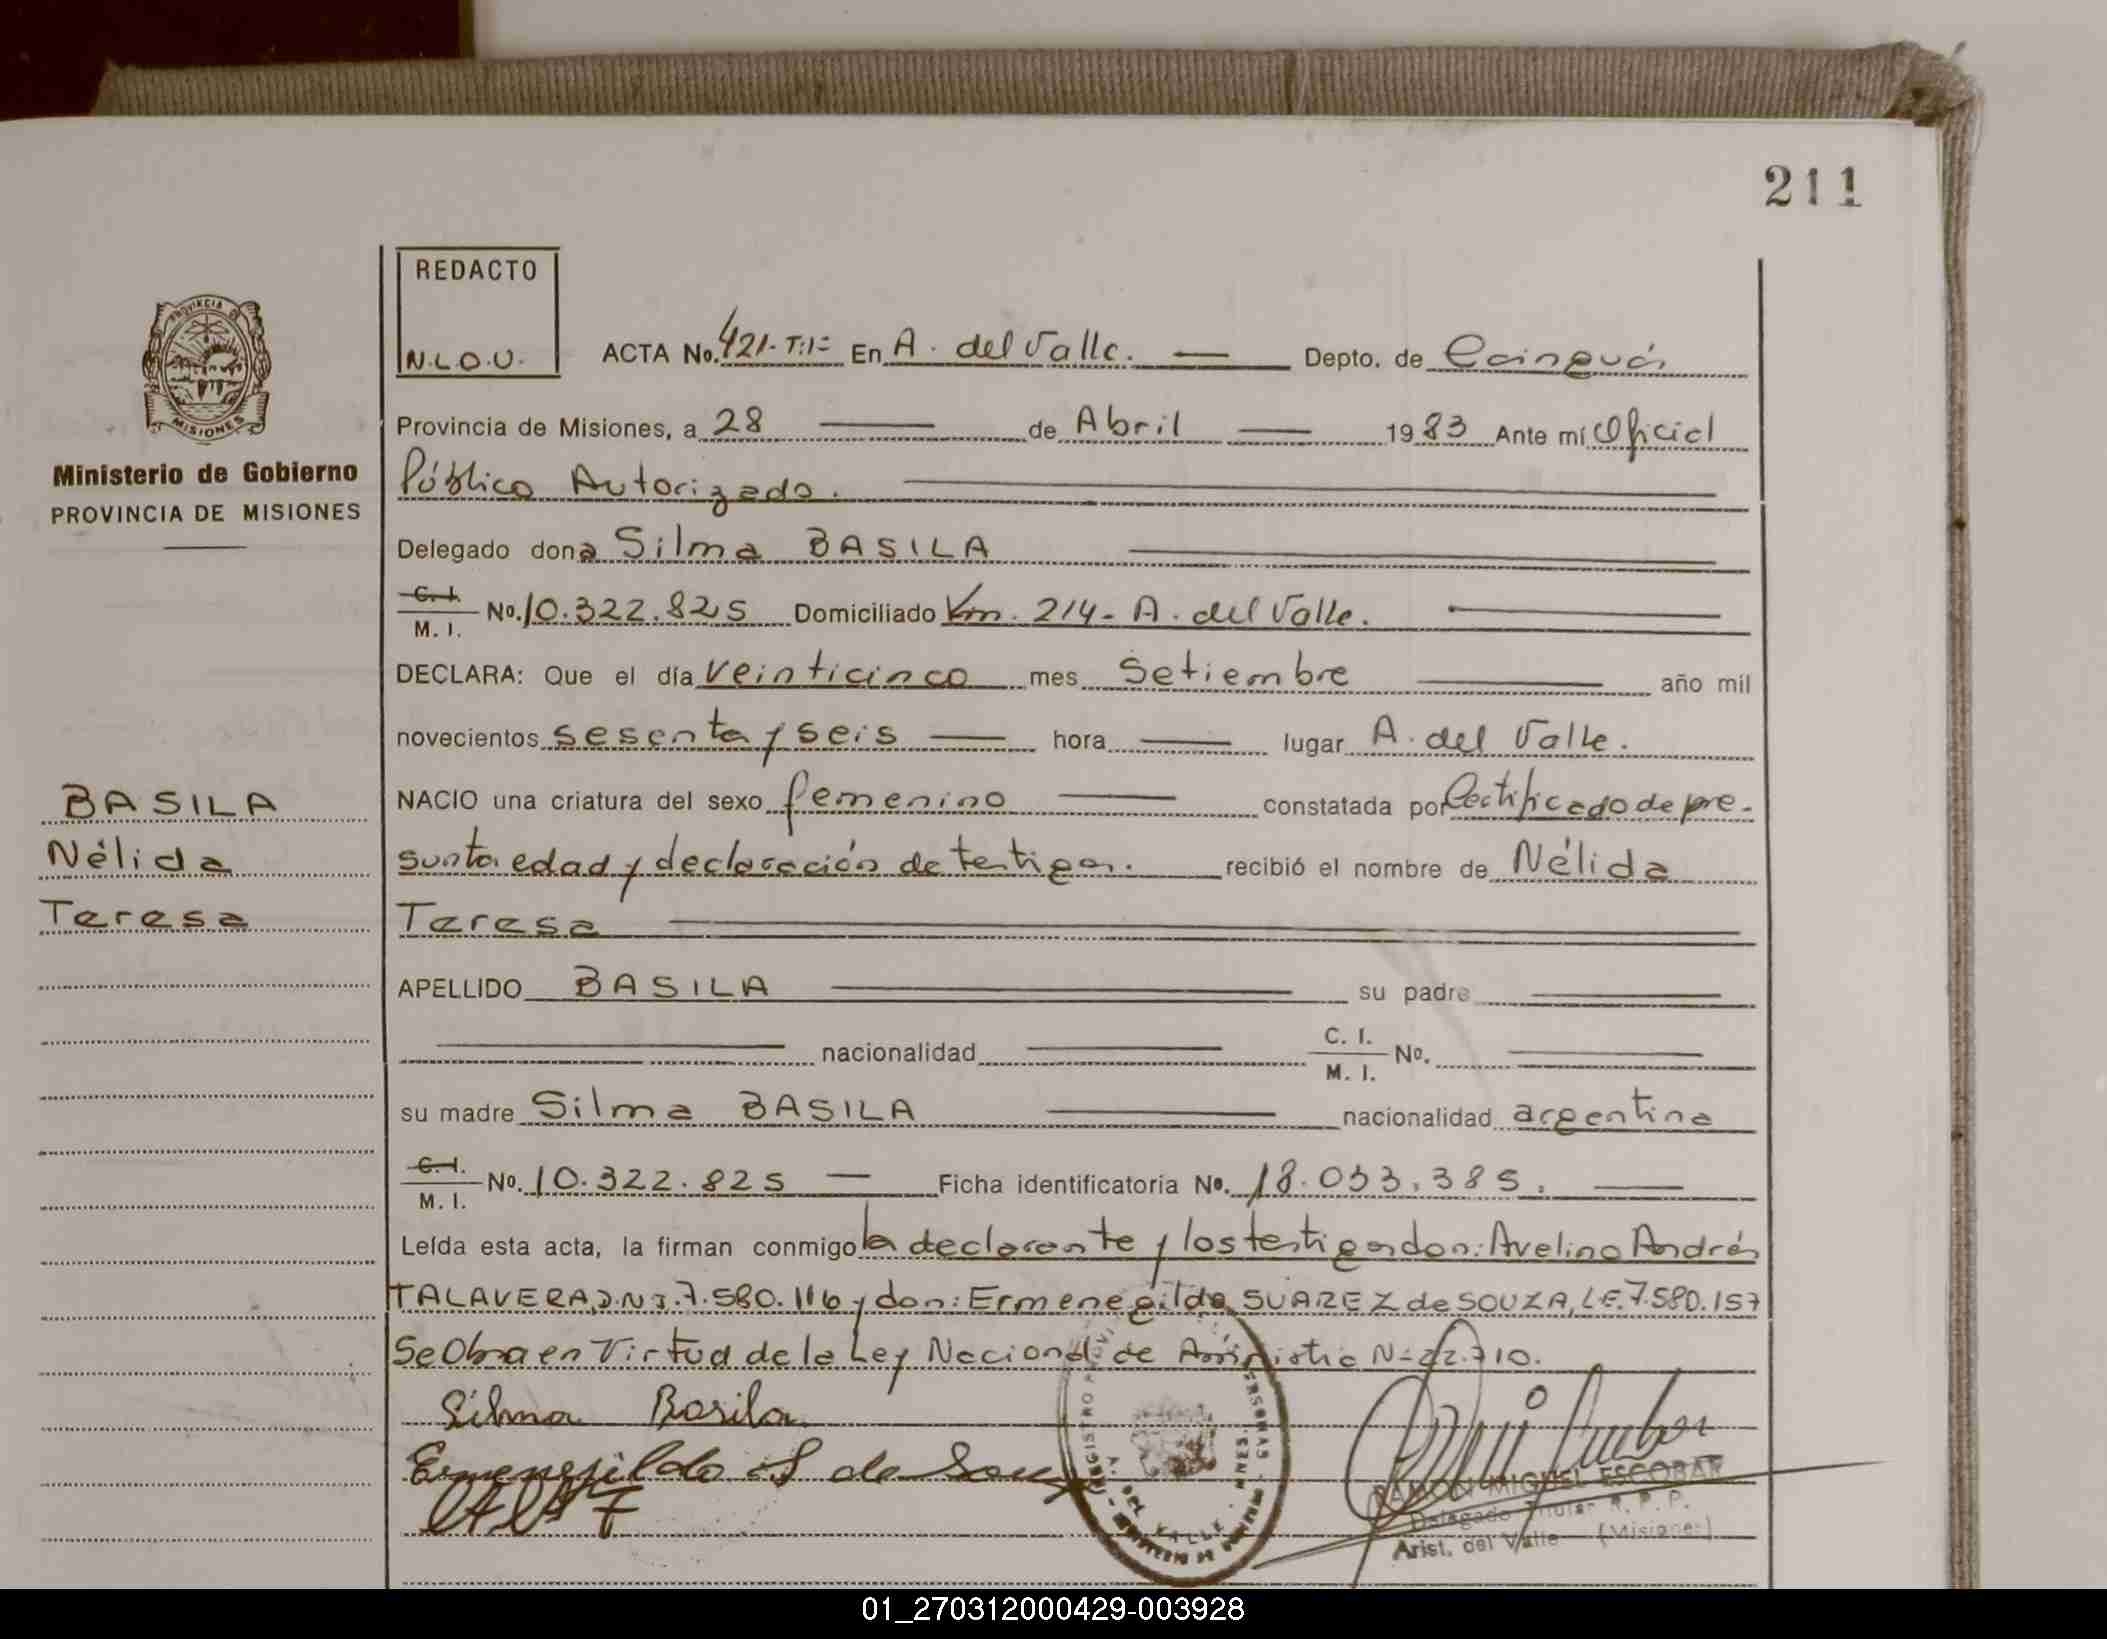 211
REDACTO
N.L.O.U.
ACTA No. 421-T:1= En A. del Valle. Depto. de Cainguás
Provincia de Misiones, a 28 de Abril 1983 Ante mí Oficial
Público Autorizado.
Ministerio de Gobierno
PROVINCIA DE MISIONES
Delegado dona Silma BASILA
C. I. M. I. No. 10.322.825 Domiciliado Km. 214- A. del Valle.
DECLARA: Que el día veinticinco mes Setiembre año mil
novecientos sesenta y seis hora lugar A. del Valle.
NACIO una criatura del sexo femenino constatada por Certificado de pre-
sunta edad y declaración de testigos. recibió el nombre de Nélida
Teresa
BASILA
Nélida
Teresa
APELLIDO BASILA su padre
nacionalidad C. I. M. I. No.
su madre Silma BASILA nacionalidad argentina
C. I. M. I. No. 10.322.825 Ficha identificatoria No. 18.033.385.
Leída esta acta, la firman conmigo la declarante y los testigos don: Avelino Andrés
TALAVERA, D.N.I. 7.580.116 y don: Ermenegildo SUAREZ de SOUZA, L.E. 7.580.157
Se Obra en Virtud de la Ley Nacional de Amnistia N=22.710.
Silma Basila
Ermenegildo S de Souza
RAMON MIGUEL ESCOBAR
Delegado Titular R. P. P.
Arist. del Valle (Misiones)
01_270312000429-003928